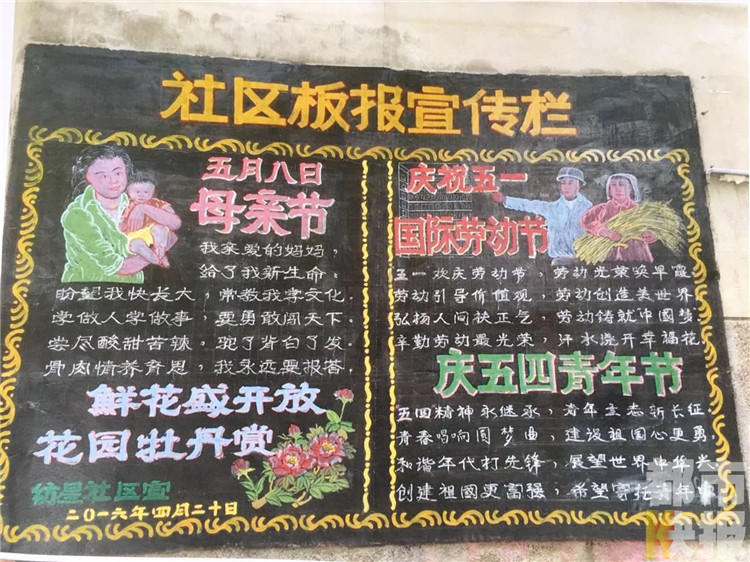 社区板报宣传栏
五月八日
母亲节
我亲爱的妈妈，
给了我新生命.
盼望我快长大，常教我学文化.
学做人学做事，要勇敢闯天下.
尝尽酸甜苦辣，驼了背白了发.
骨肉情养育恩，我永远要报答.
鲜花盛开放
花园牡丹赏
纺星社区宣
二〇一六年四月二十日
庆祝五一
国际劳动节
五一欢庆劳动节，劳动光荣映早霞
劳动引导价值观，劳动创造美世界
弘扬人间扶正气，劳动铸就中国梦
辛勤劳动最光荣，汗水浇开幸福花
庆五四青年节
五四精神永继承，青年立志新长征.
青春唱响圆梦曲，建设祖国心更勇.
和谐年代打先锋，展望世界中华兴
创建祖國更富强，希望寄托青年
都市快报